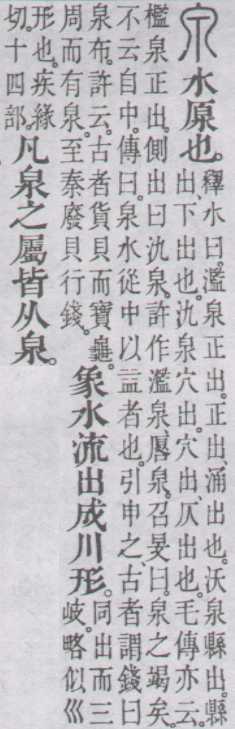 泉水原也。釋水曰。濫泉正出。正出、涌出也。沃泉縣出。縣
出、下出也。氿泉穴出。穴出、仄出也。毛傳亦云。
檻泉正出。側出曰氿泉。許作濫泉。厬泉。召旻曰。泉之竭矣。
不云自中。傳曰。泉水從中以益者也。引申之、古者謂錢曰
泉布。許云。古者貨貝而寶龜。
周而有泉。至秦廢貝行錢。
象水流出成川形。同出而三
岐。略似巛
形也。疾緣
切。十四部。
凡泉之屬皆从泉。